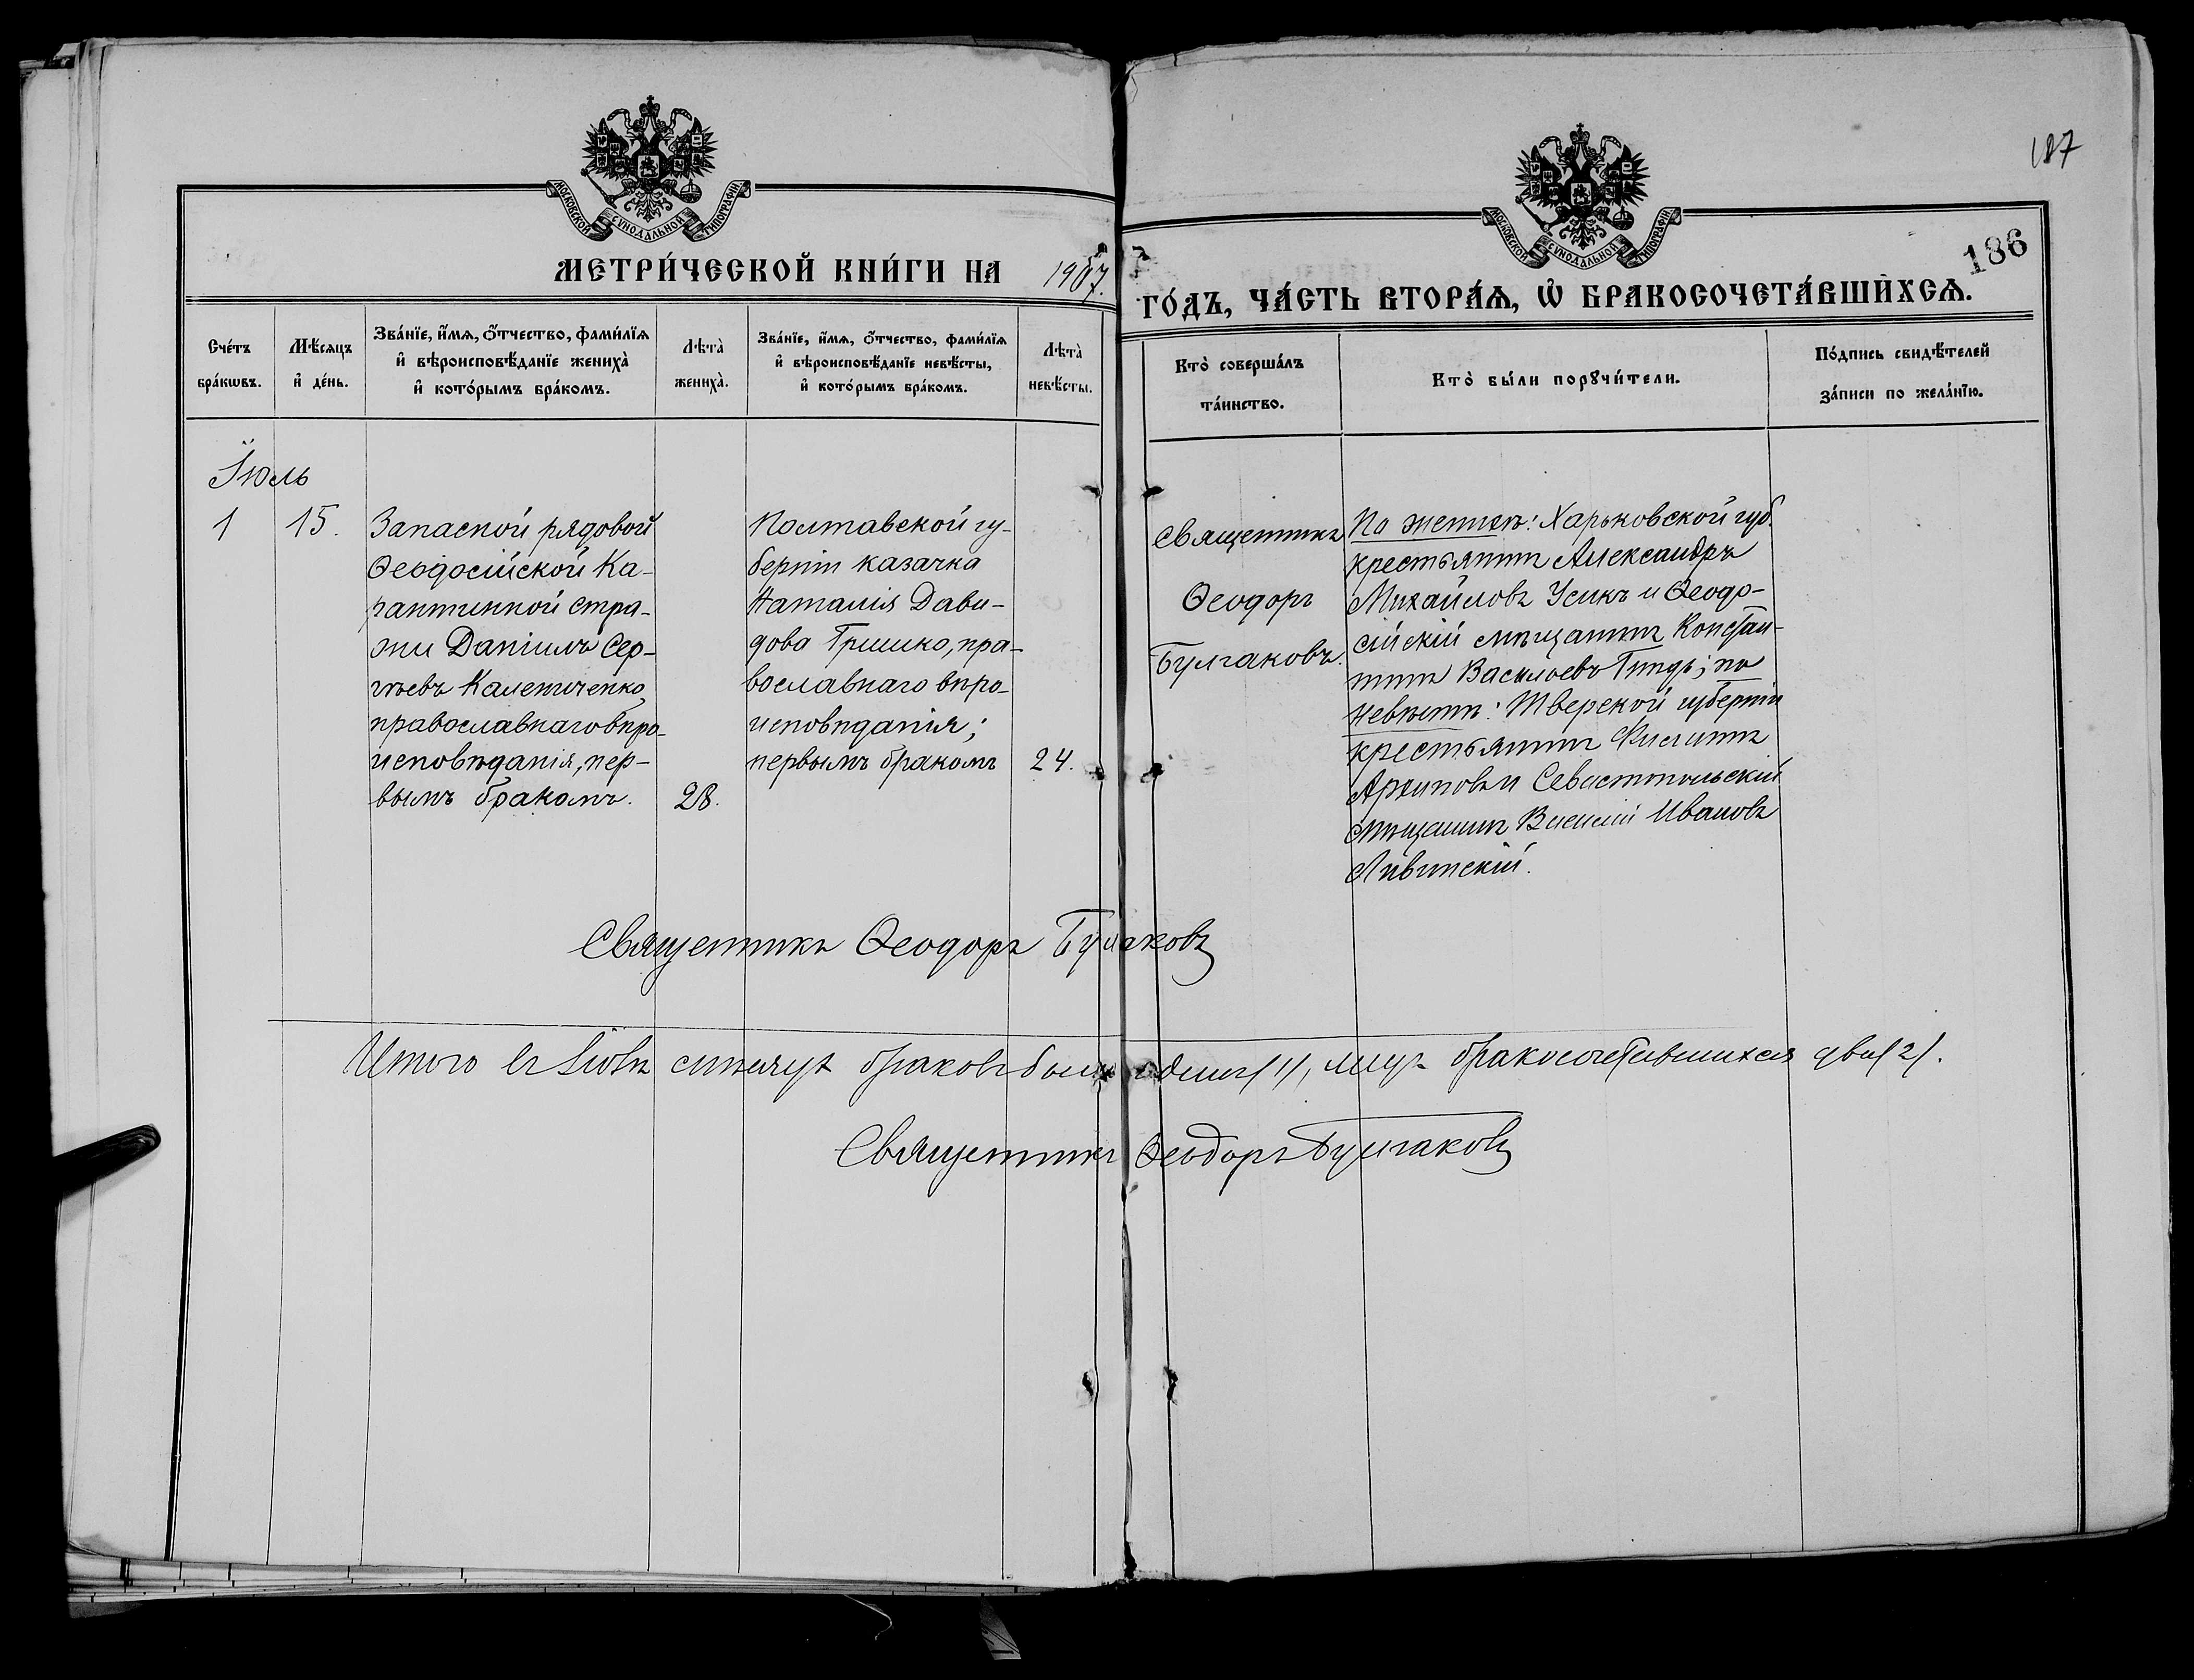 187
186
МОСКОВСКОЙ СѴНОДАЛЬНОЙ ТИПОГРАФІИ
МОСКОВСКОЙ СѴНОДАЛЬНОЙ ТИПОГРАФІИ
МЕТРИ́ЧЕСКОЙ КНИ́ГИ НА 1907.
ГО́ДЪ, ЧА́СТЬ ВТОРА́Ѧ, Ѡ҆ БРАКОСОЧЕТА́ВШИХСѦ.
Сче́тъ бра́кѡвъ.
Мѣ́сяцъ и҆ де́нь.
Зва́нїе, и҆́мѧ, ѻ҆́тчество, фами́лїѧ и҆ вѣроисповѣ́данїе жениха̀ и҆ кото́рымъ бра́комъ.
Лѣта̀ жениха̀.
Зва́нїе, и҆́мѧ, ѻ҆́тчество, фами́лїѧ и҆ вѣроисповѣ́данїе невѣ́сты, и҆ кото́рымъ бра́комъ.
Лѣта̀ невѣ́сты.
Кто̀ соверша́лъ та́инство.
Кто̀ бы́ли порꙋчи́тели.
По́дпись свидѣ́телей за́писи по жела́нїю.
Іюль
1
15.
Запасной рядовой
Ѳеодосійской Ка-
рантинной стра-
жи Даніилъ Сер-
гѣевъ Калениченко,
православнаго вѣро-
исповѣданія, пер-
вымъ бракомъ.
28.
Полтавской гу-
берніи казачка
Наталія Дави-
дова Гришко, пра-
вославнаго вѣро-
исповѣданія;
первымъ бракомъ
24.
Священникъ
Ѳеодоръ
Булгаковъ.
По женихѣ: Харьковской губ.
крестьянинъ Александръ
Михайловъ Усикъ и Ѳеодо-
сійскій мѣщанинъ Констан-
тинъ Васильевъ; по
невѣстѣ: Тверской губерніи
крестьянинъ
Архиповъ и Севастопольскій
мѣщанинъ Василій Ивановъ
Левинскій.
Священникъ Ѳеодоръ Булгаковъ
Итого въ Іюлѣ мѣсяцѣ браковъ былъ одинъ (1), лицъ бракосочетавшихся два (2).
Священникъ Ѳеодоръ Булгаковъ